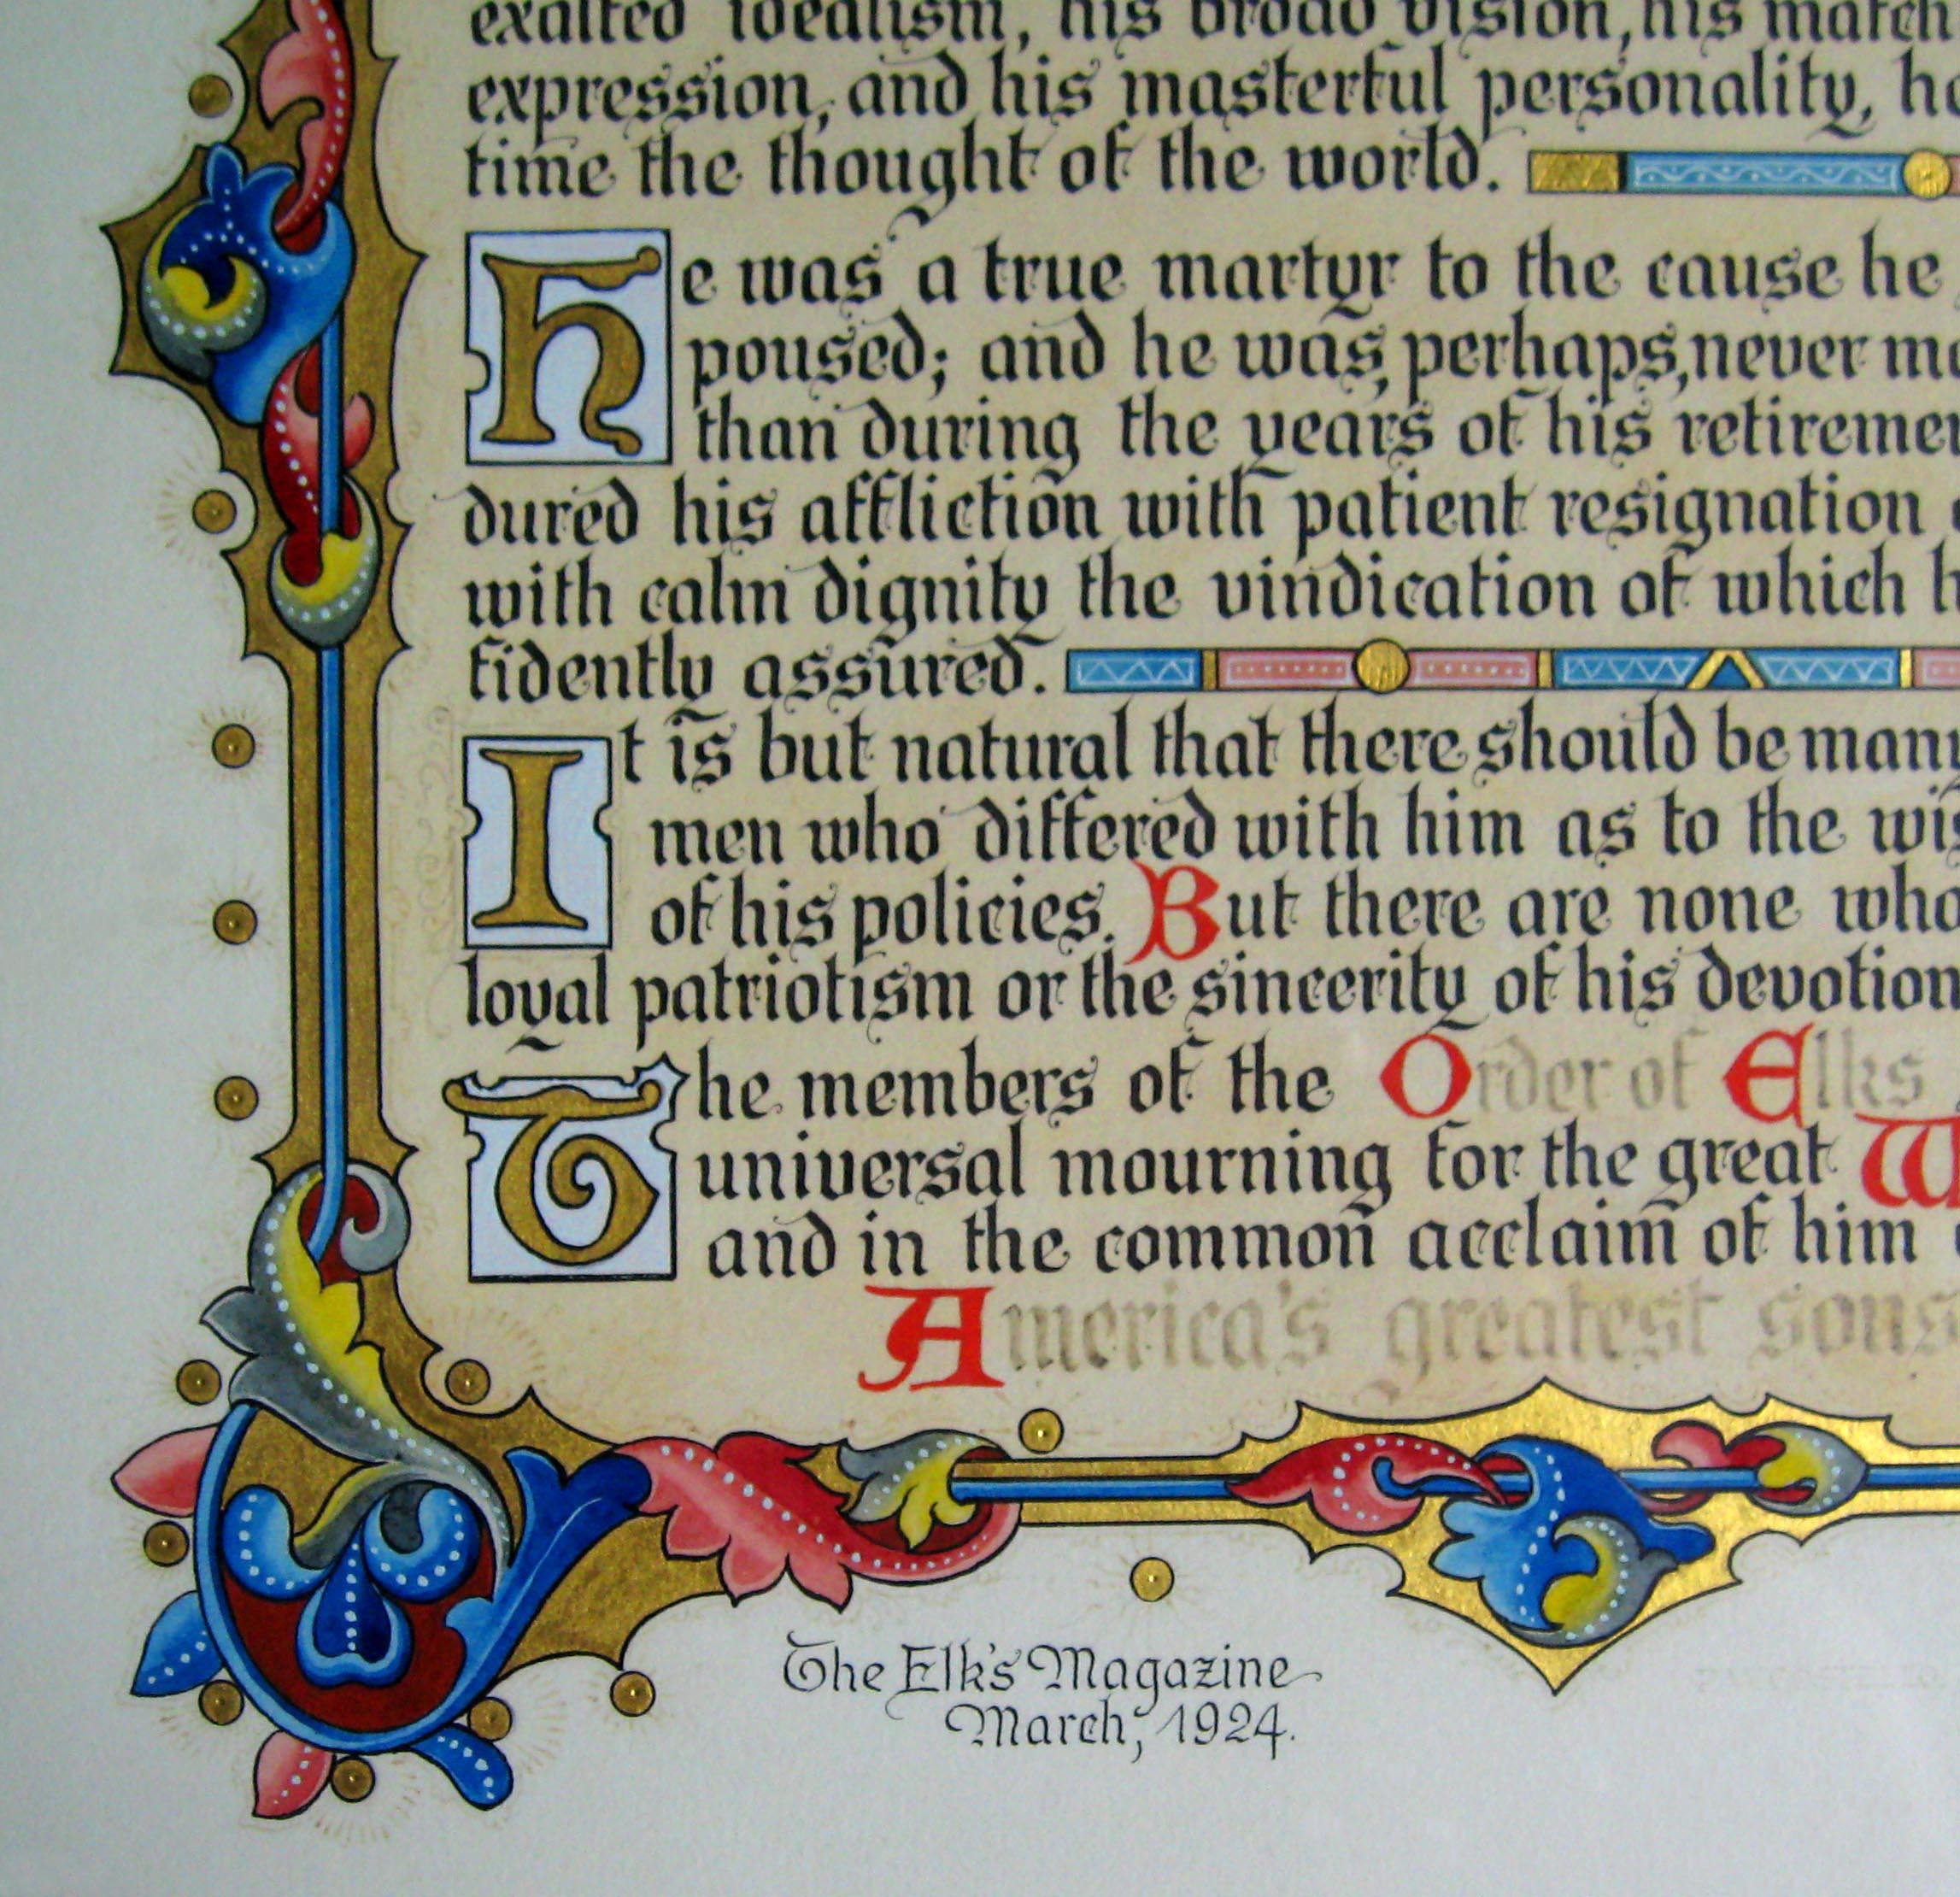 exalted idealism, his broad vision, his match
expression, and his masterful personality, he
time the thought of the world.
He was a true martyr to the cause he
poused; and he was, perhaps, never mo
than during the years of his retiremen
dured his affliction with patient resignation
with calm dignity the vindication of which h
fidently assured.
It is but natural that there should be many
men who differed with him as to the wis
of his policies. But there are none who
loyal patriotism or the sincerity of his devotion
The members of the Order of Elks
universal mourning for the great W
and in the common acclaim of him
America's greatest sons
The Elk's Magazine
March, 1924.